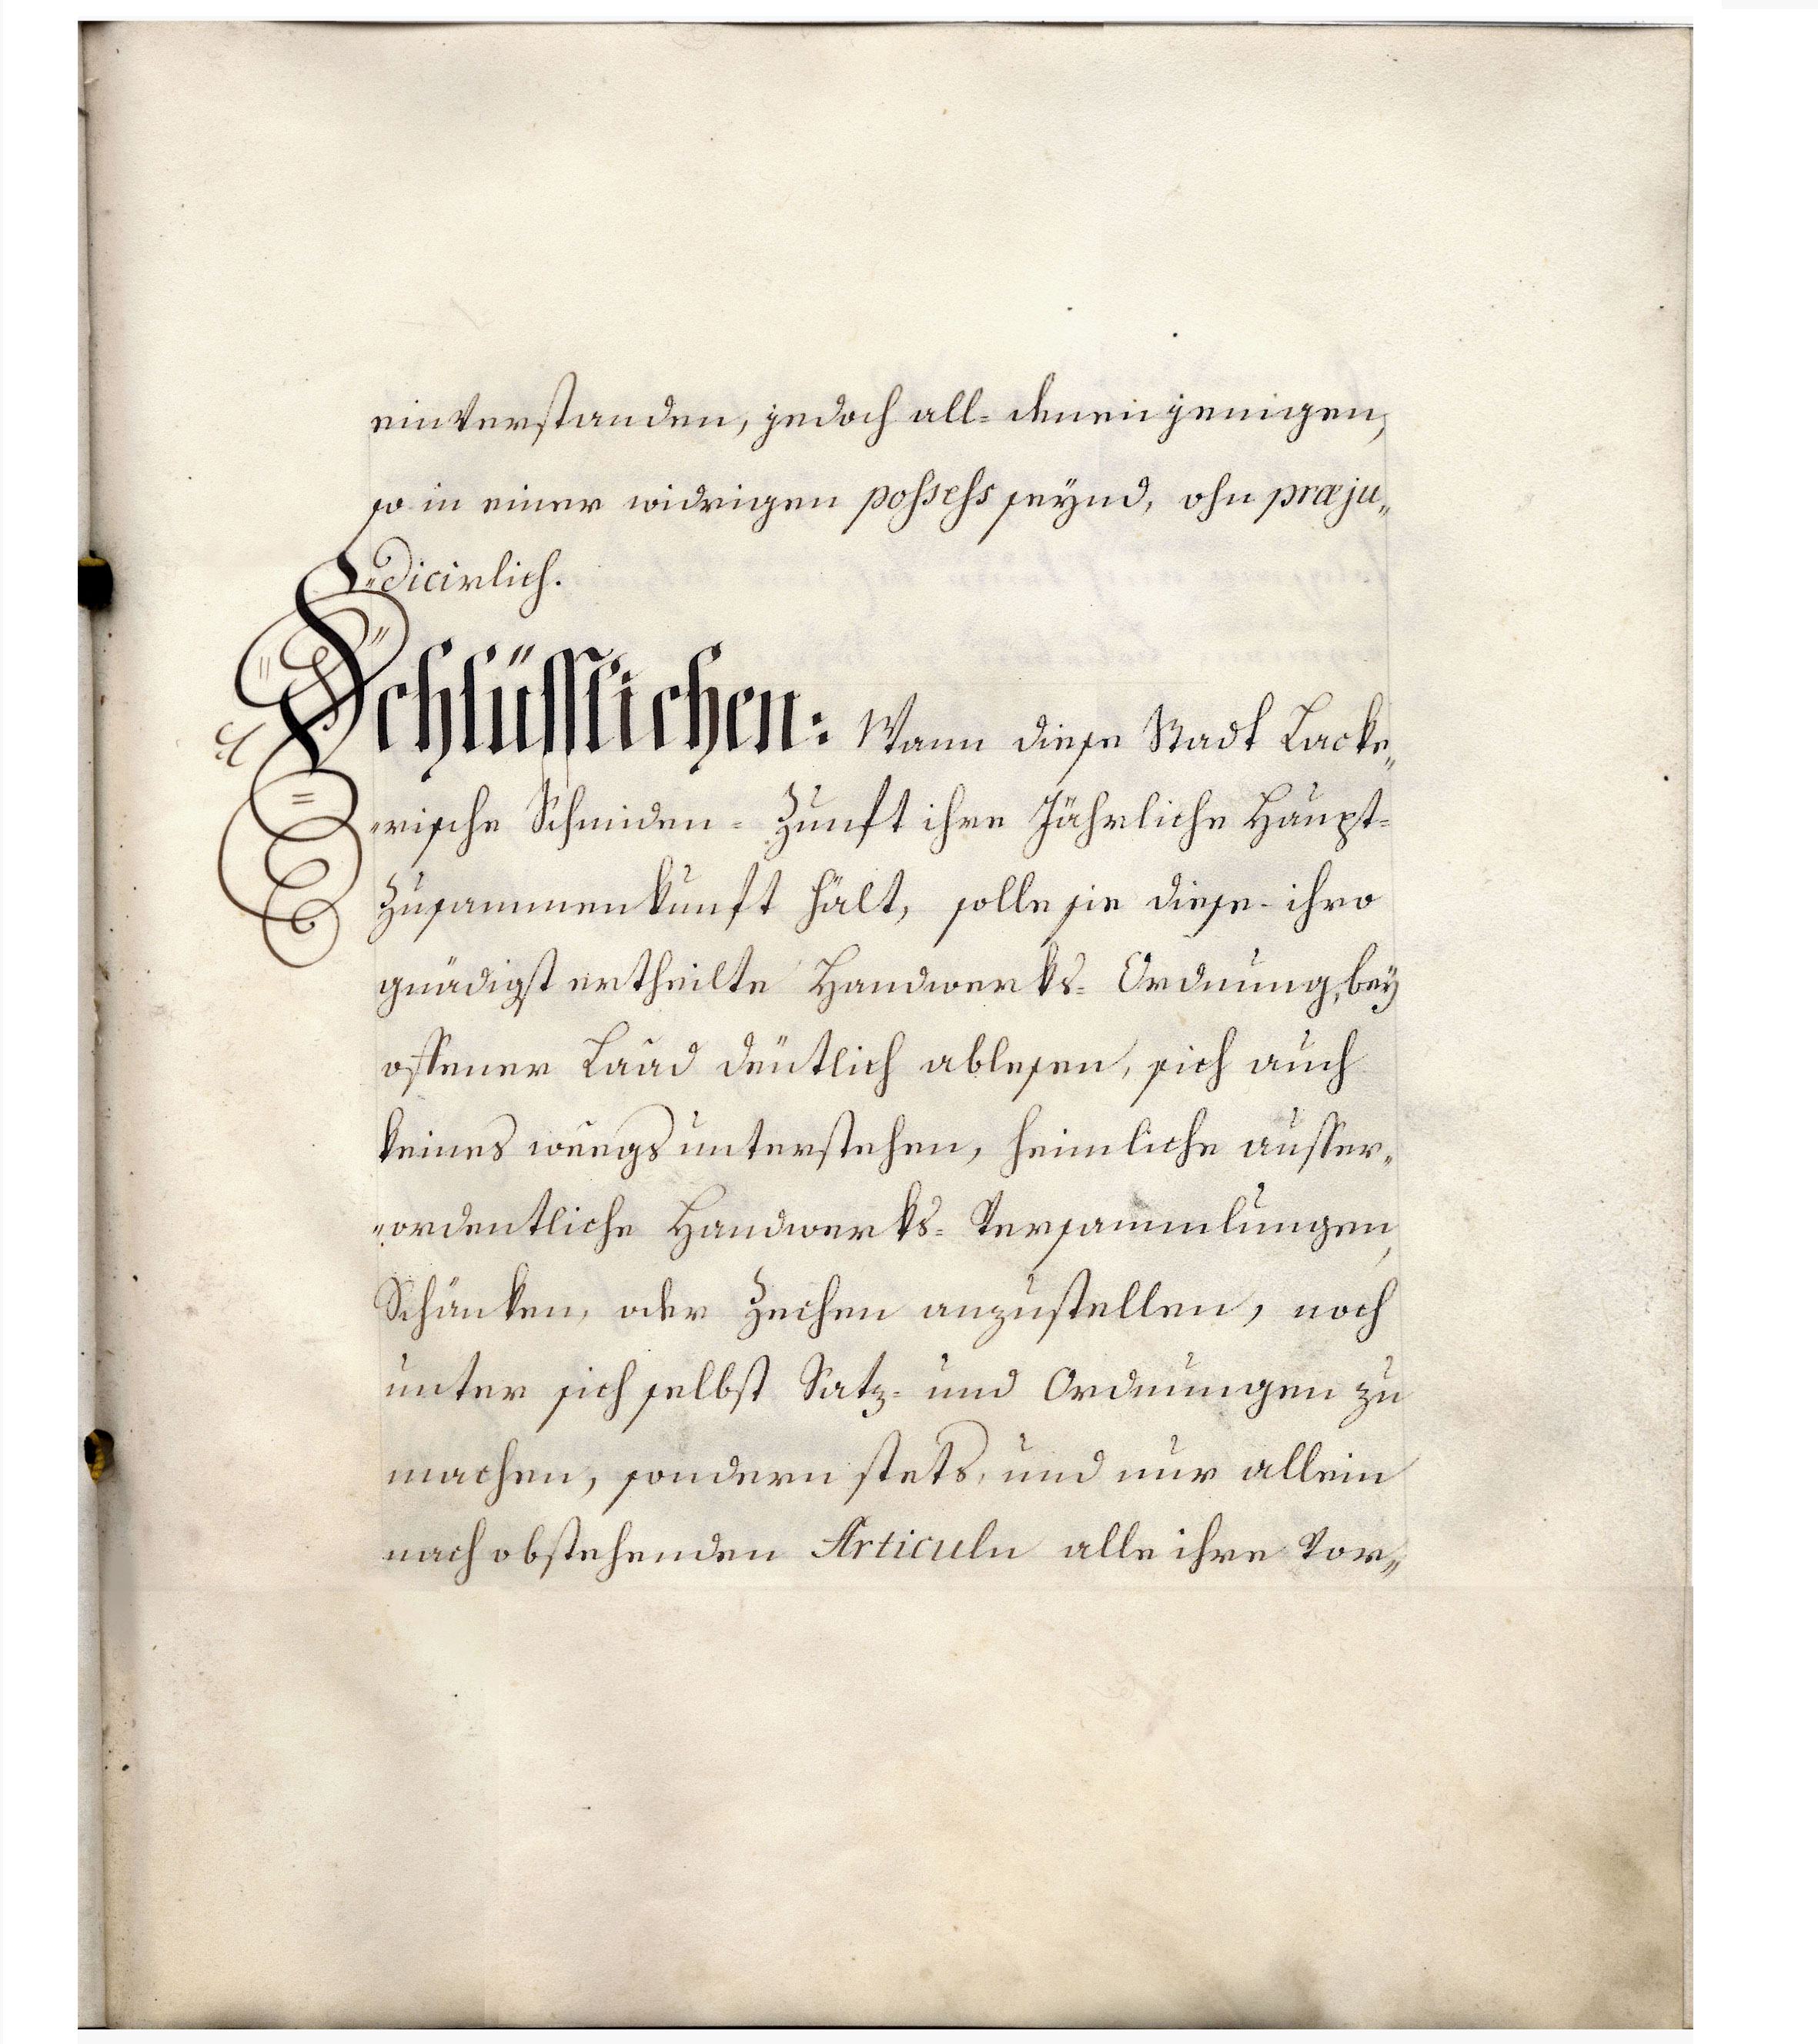 einverstanden, jedoch all- denen jenigen,
so in einer widrigen possess seynd, ohn præju„
„dicirlich.
Schlüsslichen: Wann diese Stadt Lacke„
„rische Schmiden- Zunft ihre Jährliche Haupt-
Zusammenkunft hält, solle sie diese ihro
gnädigst ertheilte Handwerks- Ordnung, bey
offener Laad deütlich ablesen, sich auch
keines weegs unterstehen, heimliche ausser„
„ordentliche Handwerks- Versammlungen,
Schänken, oder Zechen anzustellen, noch
unter sich selbst Satz- und Ordnungen zu
machen, sondern stets, und nur allein
nach obstehenden Articuln alle ihre Vor„